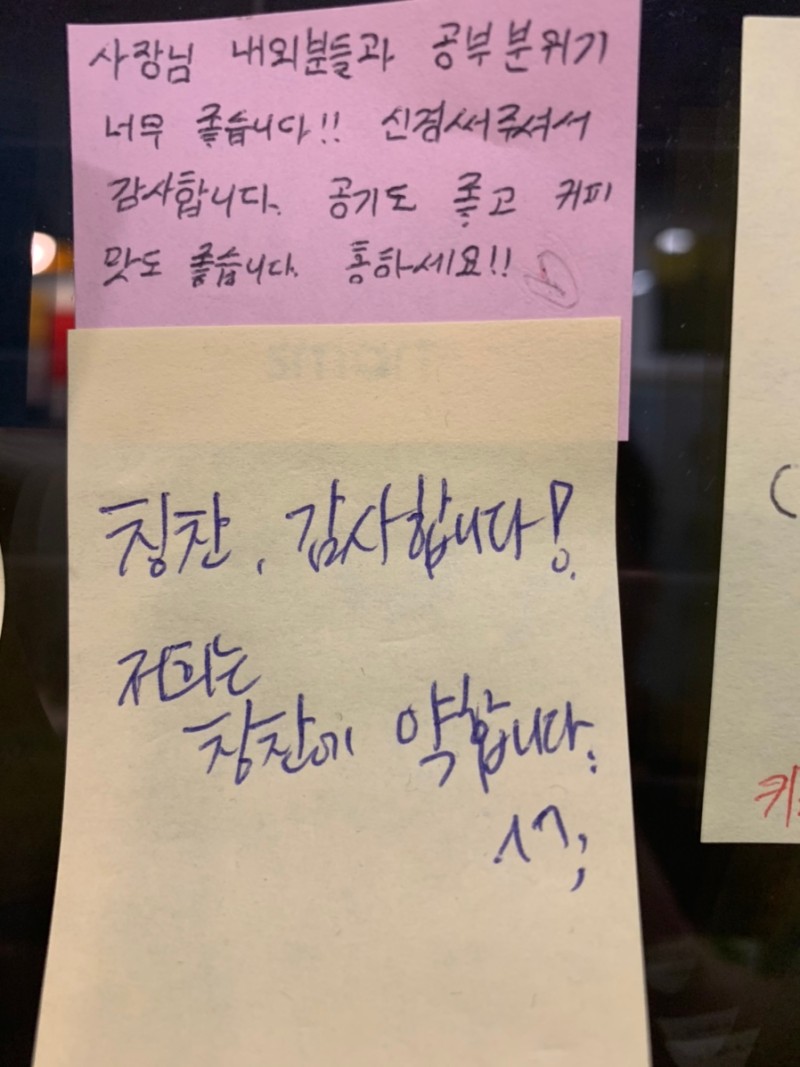 사장님 내외분들과 공부분위기
너무 좋습니다!! 신경써주셔서
감사합니다. 공기도 좋고 커피
맛도 좋습니다. 통하세요!!
칭찬, 감사합니다!
저희는
칭찬에 약합니다.
^^;